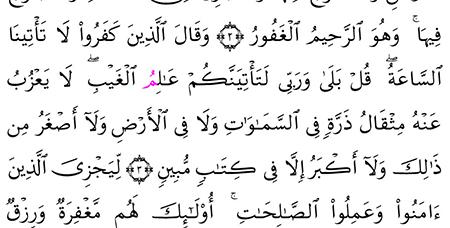 فِيهَا ۚ وَهُوَ ٱلرَّحِيمُ ٱلْغَفُورُ ۝٢ وَقَالَ ٱلَّذِينَ كَفَرُوا۟ لَا تَأْتِينَا
ٱلسَّاعَةُ ۖ قُلْ بَلَىٰ وَرَبِّى لَتَأْتِيَنَّكُمْ عَـٰلِمُ ٱلْغَيْبِ ۖ لَا يَعْزُبُ
عَنْهُ مِثْقَالُ ذَرَّةٍ فِى ٱلسَّمَـٰوَٰتِ وَلَا فِى ٱلْأَرْضِ وَلَآ أَصْغَرُ مِن
ذَٰلِكَ وَلَآ أَكْبَرُ إِلَّا فِى كِتَـٰبٍ مُّبِينٍ ۝٣ لِّيَجْزِىَ ٱلَّذِينَ
ءَامَنُوا۟ وَعَمِلُوا۟ ٱلصَّـٰلِحَـٰتِ ۚ أُو۟لَـٰٓئِكَ لَهُم مَّغْفِرَةٌ وَرِزْقٌ